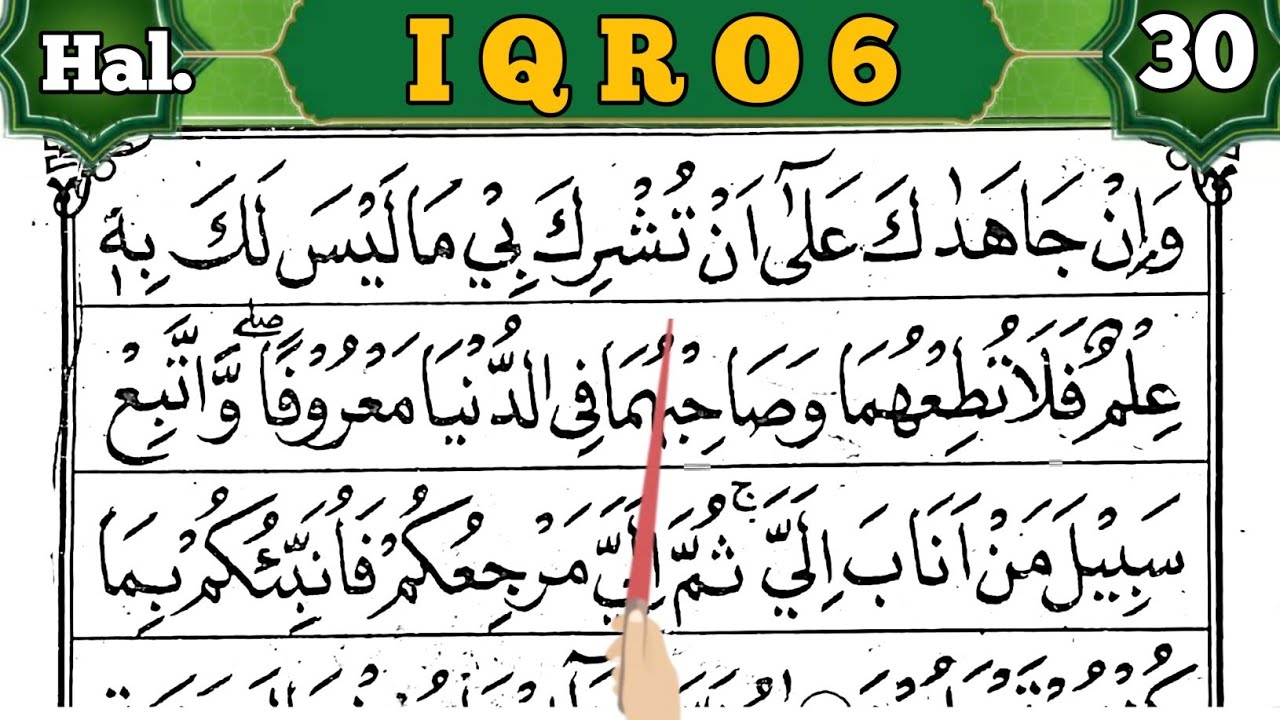 Hal.
IQRO 6
30
وَاِنْ جَاهَدٰكَ عَلٰٓى اَنْ تُشْرِكَ بِيْ مَا لَيْسَ لَكَ بِهٖ
عِلْمٌ فَلَا تُطِعْهُمَا وَصَاحِبْهُمَا فِى الدُّنْيَا مَعْرُوْفًا ۖ وَّاتَّبِعْ
سَبِيْلَ مَنْ اَنَابَ اِلَيَّ ۚ ثُمَّ اِلَيَّ مَرْجِعُكُمْ فَاُنَبِّئُكُمْ بِمَا